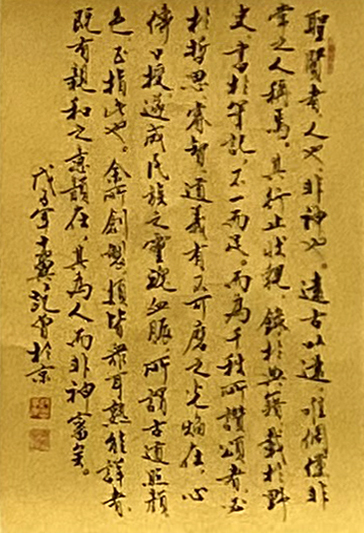 聖賢者人也,非神也。遠古以遠唯倜儻非
常之人稱焉。其行止狀貌,錄於典籍,載於野
史,書於筆記,不一而足。而為千秋所讚頌者,
於哲思睿智道義有不可磨之光焰在,心
傳口授遂成民族之靈魂血脈,所謂古道照顏
色正指此也。余所創製,皆耳熟能詳者,
既有親和之意韻在,其為人而非神審矣。
戊子十翼范曾於京